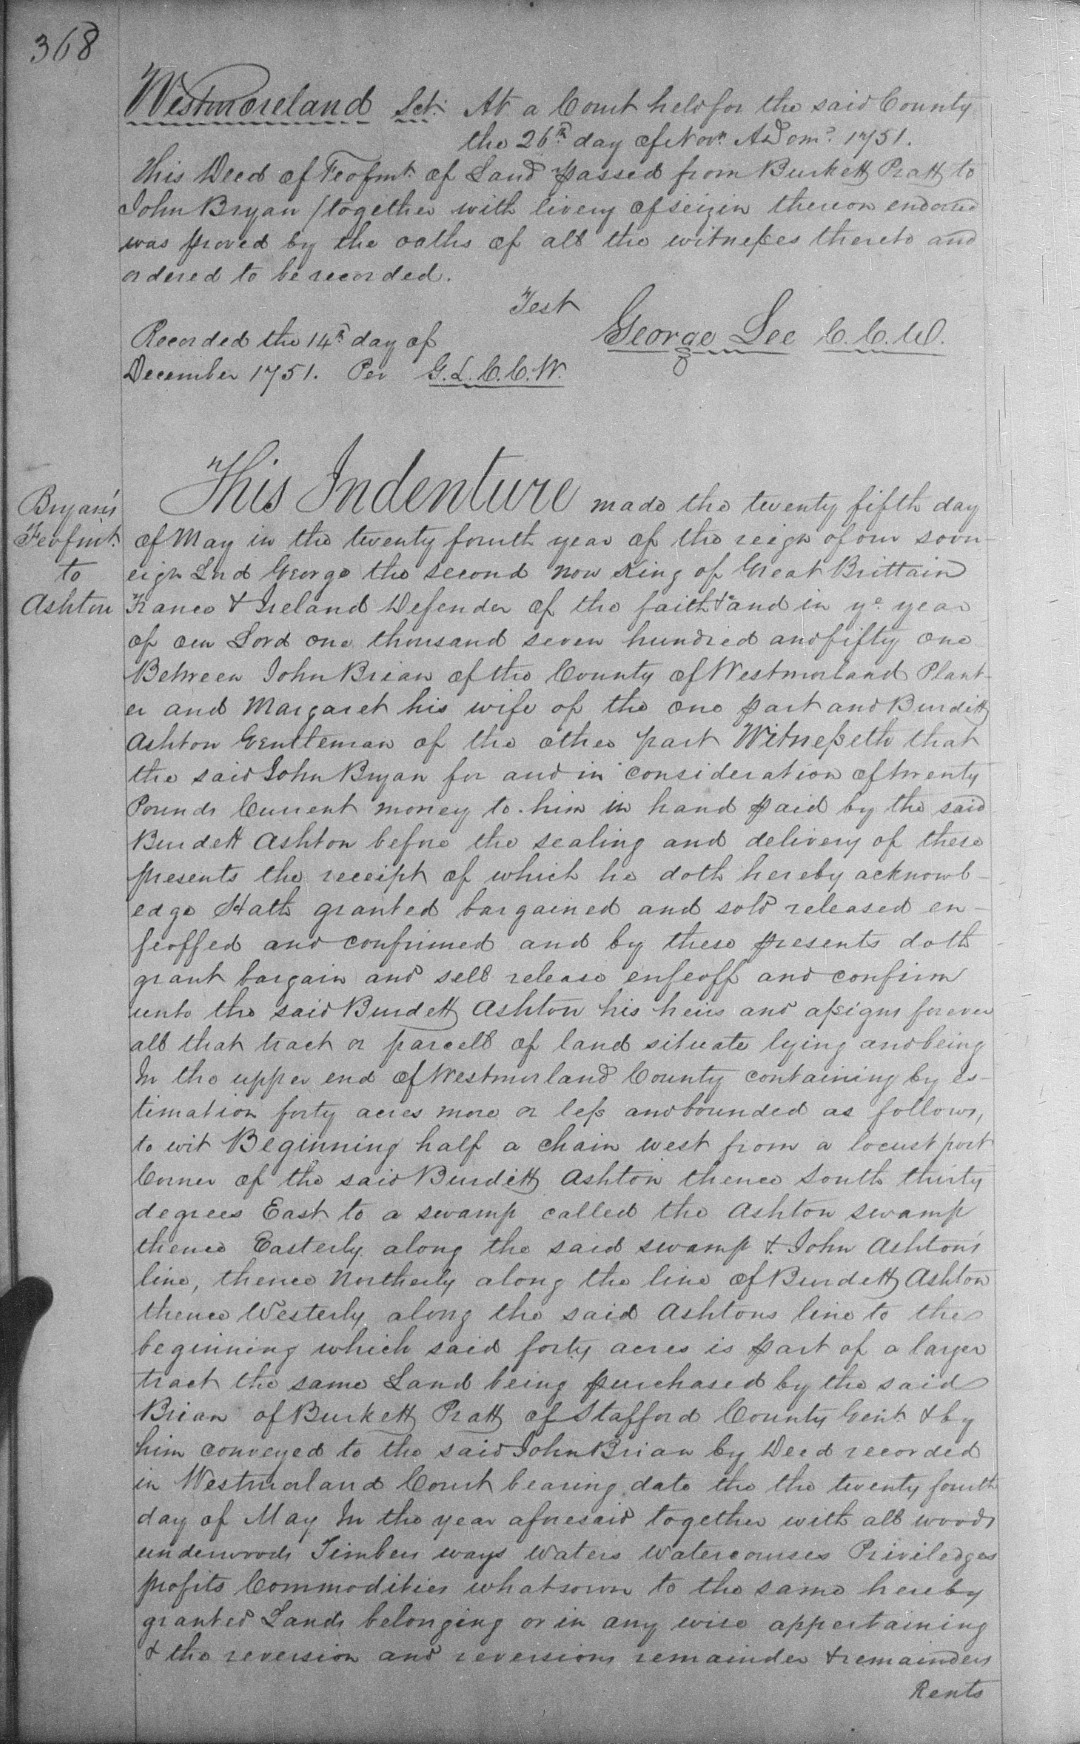 368
Westmoreland Sct. At a Court held for the said County
the 26th day of Novr. A Dom. 1751.
This Deed of Feofmt. of Land passed from Burkett Pratt to
John Bryan / together with livery of seizin thereon endorsed
was proved by the oaths of all the witneſses thereto and
ordered to be recorded.
Test
George Lee C.C.W.
Recorded the 14th day of
December 1751. Per G.L.C.C.W.
Bryan's
Feofmt.
to
Ashton
This Indenture made the twenty fifth day
of May in the twenty fourth year of the reign of our sover-
eign Lrd George the second now King of Great Brittain
France & Ireland Defender of the faith & and in ye. year
of our Lord one thousand seven hundred and fifty one
Between John Brian of the County of Westmorland Plant-
er and Margaret his wife of the one part and Burditt
Ashton Gentleman of the other part Witneſseth that
the said John Bryan for and in consideration of twenty
Pounds Current money to him in hand paid by the said
Burdett Ashton before the sealing and delivery of these
presents the receipt of which he doth hereby acknowl-
edge Hath granted bargained and sold released en-
feoffed and confirmed and by these presents doth
grant bargain and sell release enfeoff and confirm
unto the said Burdett Ashton his heirs and aſsigns forever
all that tract or parcell of land situate lying and being
In the upper end of Westmorland County containing by es-
timation forty acres more or leſs and bounded as follows,
to wit Beginning half a chain west from a locust post
Corner of the said Burditt Ashton thence South thirty
degrees East to a swamp called the Ashton swamp
thence Easterly along the said swamp & John Ashton's
line, thence Northerly along the line of Burdett Ashton
thence Westerly along the said Ashtons line to the
beginning which said forty acres is part of a larger
tract the same Land being purchased by the said
Brian of Burkett Pratt of Stafford County Gent & by
him conveyed to the said John Brian by Deed recorded
in Westmorland Court bearing date the the twenty fourth
day of May In the year aforesaid together with all woods
underwoods Timbers ways Waters Watercourses Priviledges
profits Commodities whatsoever to the same hereby
granted Lands belonging or in any wise appertaining
& the reversion and reversions remainder & remainders
Rents